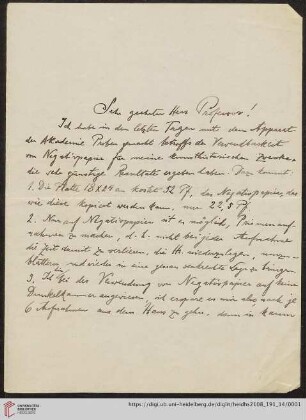 Sehr geehrter Herr Professor!
Ich habe in den letzten Tagen mit dem Apparat
der Akademie Proben gemacht betreffs der Verwendbarkeit
von Negativpapier für meine kunsthistorischen Zwecke
die sehr günstige Resultate ergeben haben. Dazu kommt:
1. Die Platte 18x24 cm kostet 52 Pf, das Negativpapier, das
wie diese kopiert werden kann, nur 22,5 Pf
2. Nur auf Negativpapier ist es möglich,
zu machen, d.h. nicht bei jeder Aufnahme
die Zeit damit zu verlieren, die
und wieder in eine genau senkrechte Lage zu bringen
3. Ist bei der Verwendung von Negativpapier auf keine
Dunkelkammer angewiesen, ich erspare es mir also, nach je
6 Aufnahmen aus dem Haus zu gehen, denn in kaum
UNIVERSITÄTS-
BIBLIOTHEK
HEIDELBERG
https://digi.ub.uni-heidelberg.de/diglit/heidhs2108_191_14/0001